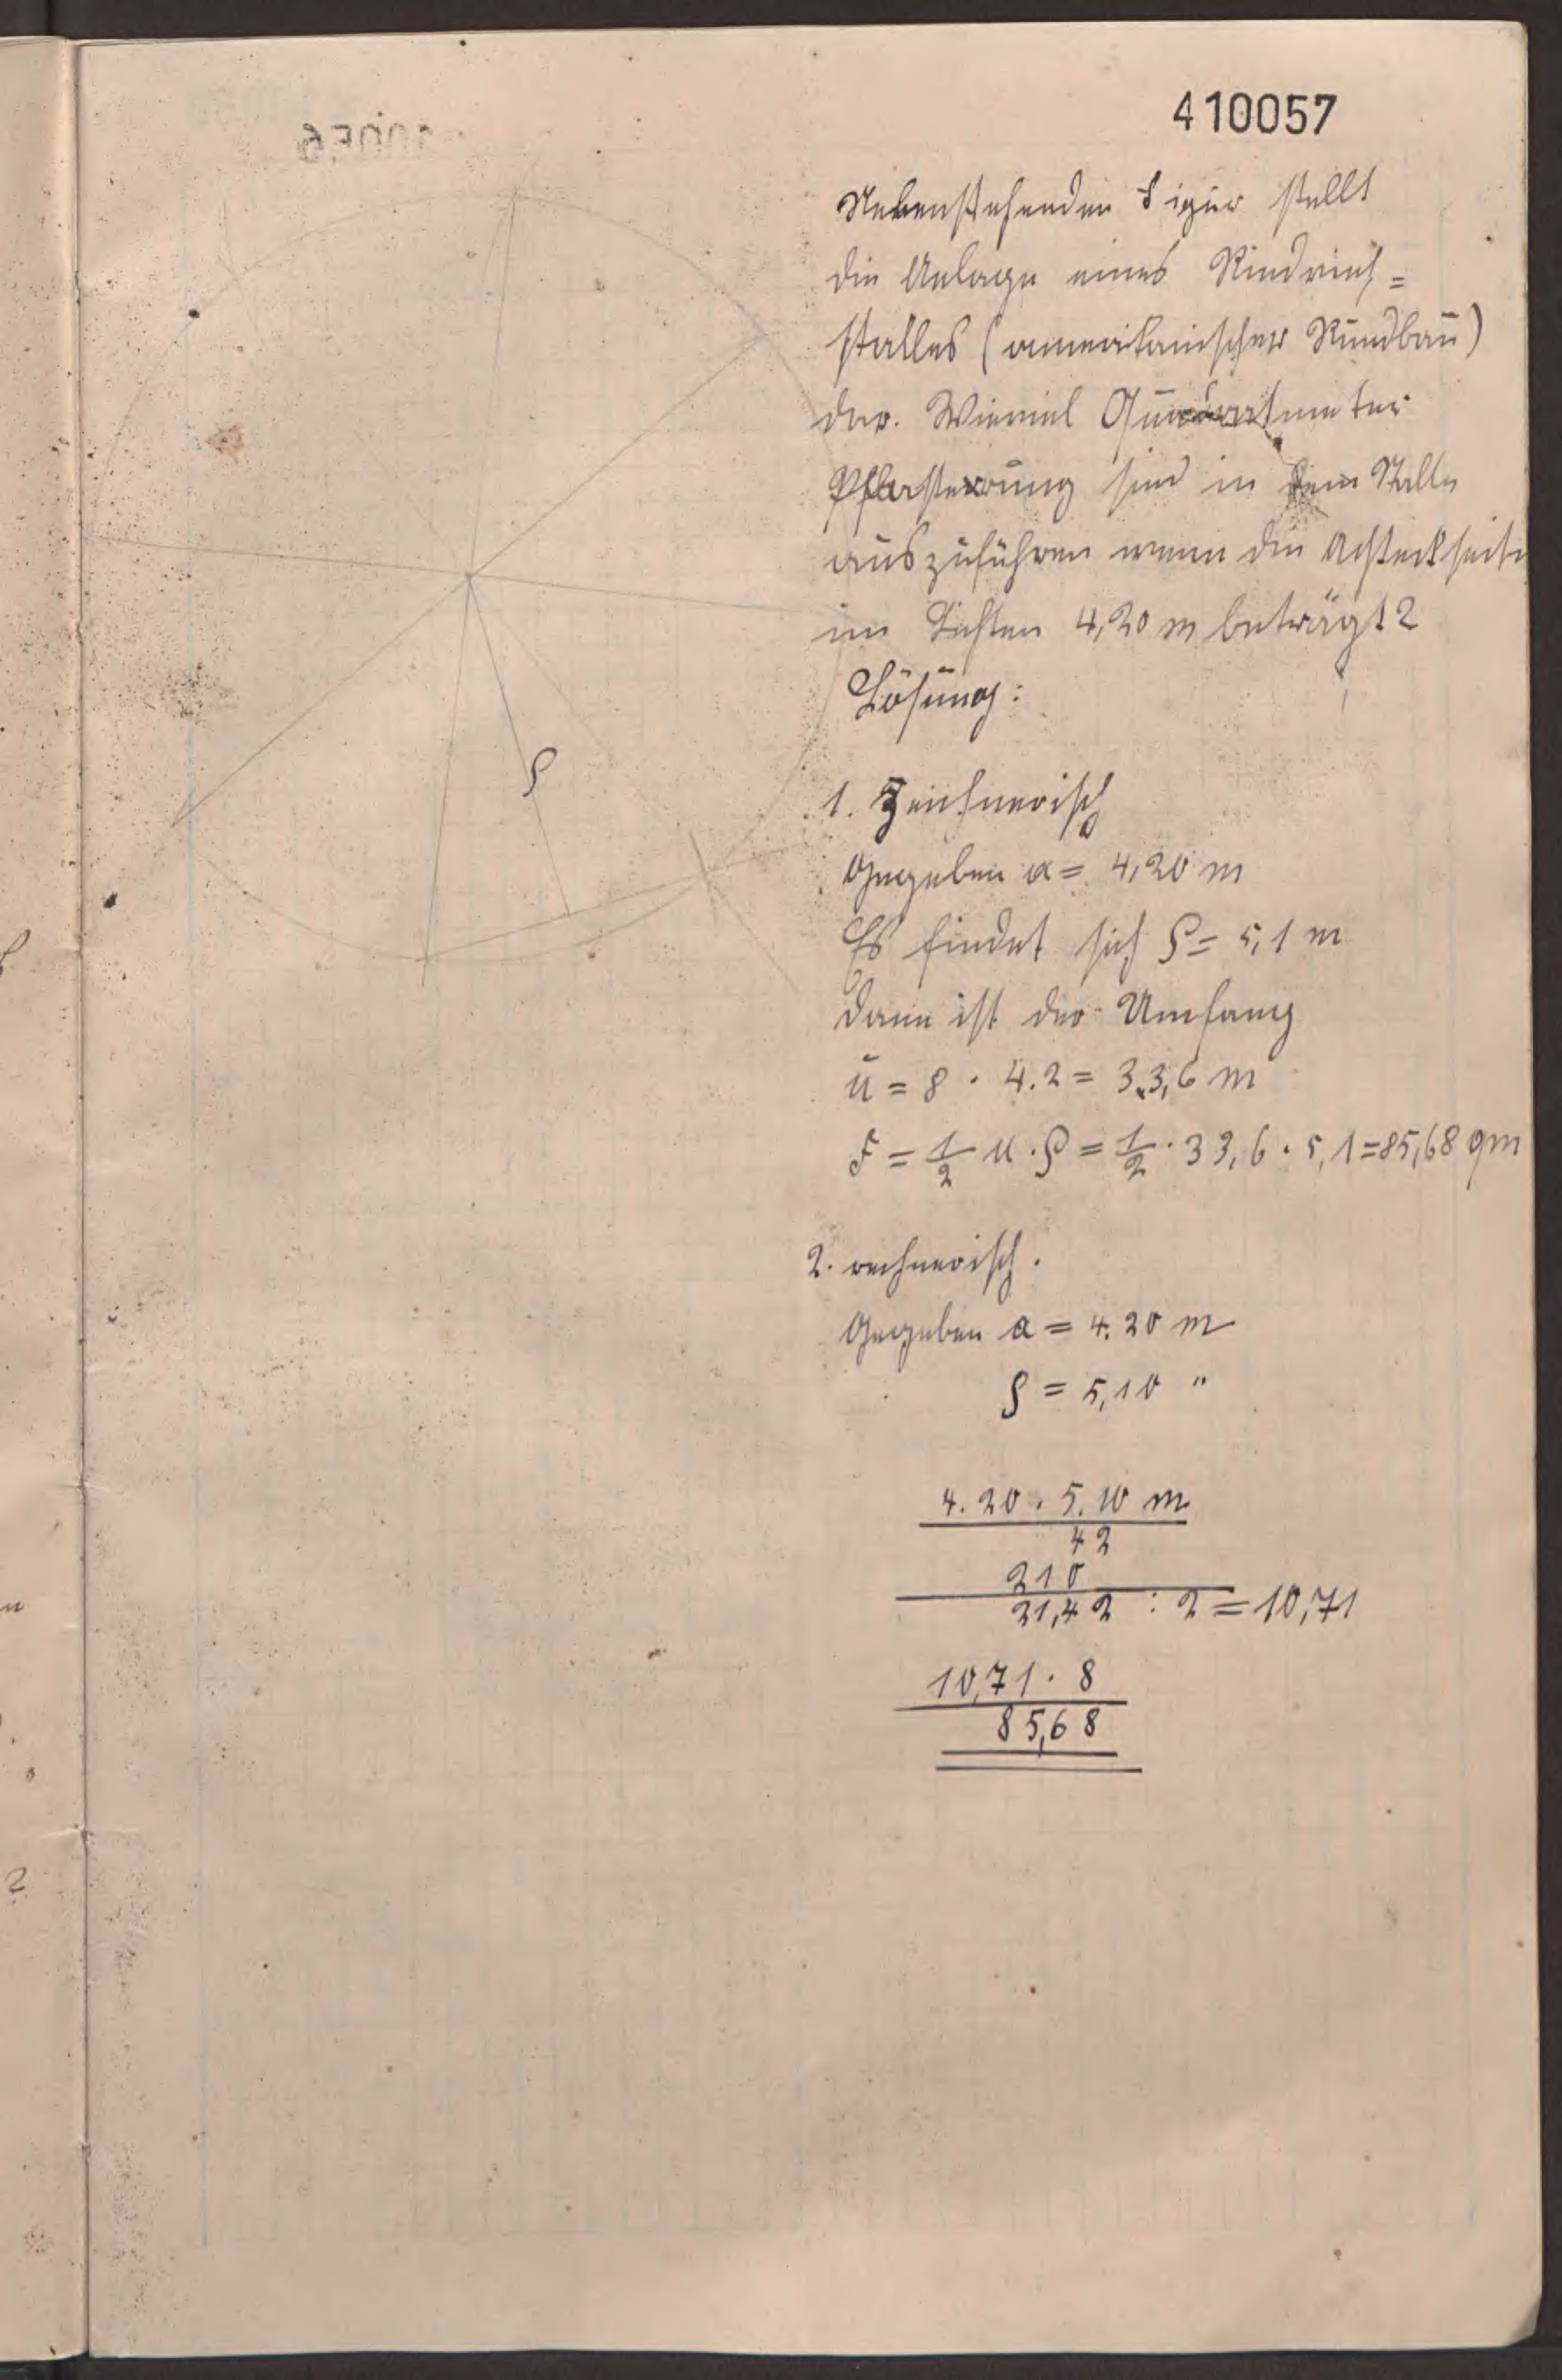 410057
Nebenstehenden Figur stellt
die Anlage eines Rindvieh=
stalles (amerikanischer Rundbau)
dar. Wieviel Quadratmeter
Pflasterung sind in dem Stalle
auszuführen wenn die Achteckseite
im Lichten 4,20 m beträgt?
Lösung:
ρ
1. Zeichnerisch
Gegeben a = 4,20 m
Es findet sich ρ = 5,1 m
dann ist der Umfang
u = 8 · 4.2 = 33,6 m
F = 1/2 u · ρ = 1/2 · 33,6 · 5,1 = 85,68 qm
2. rechnerisch.
Gegeben a = 4.20 m
ρ = 5,10 "
4.20 · 5.10 m
42
210
21,42 : 2 = 10,71
10,71 · 8
85,68